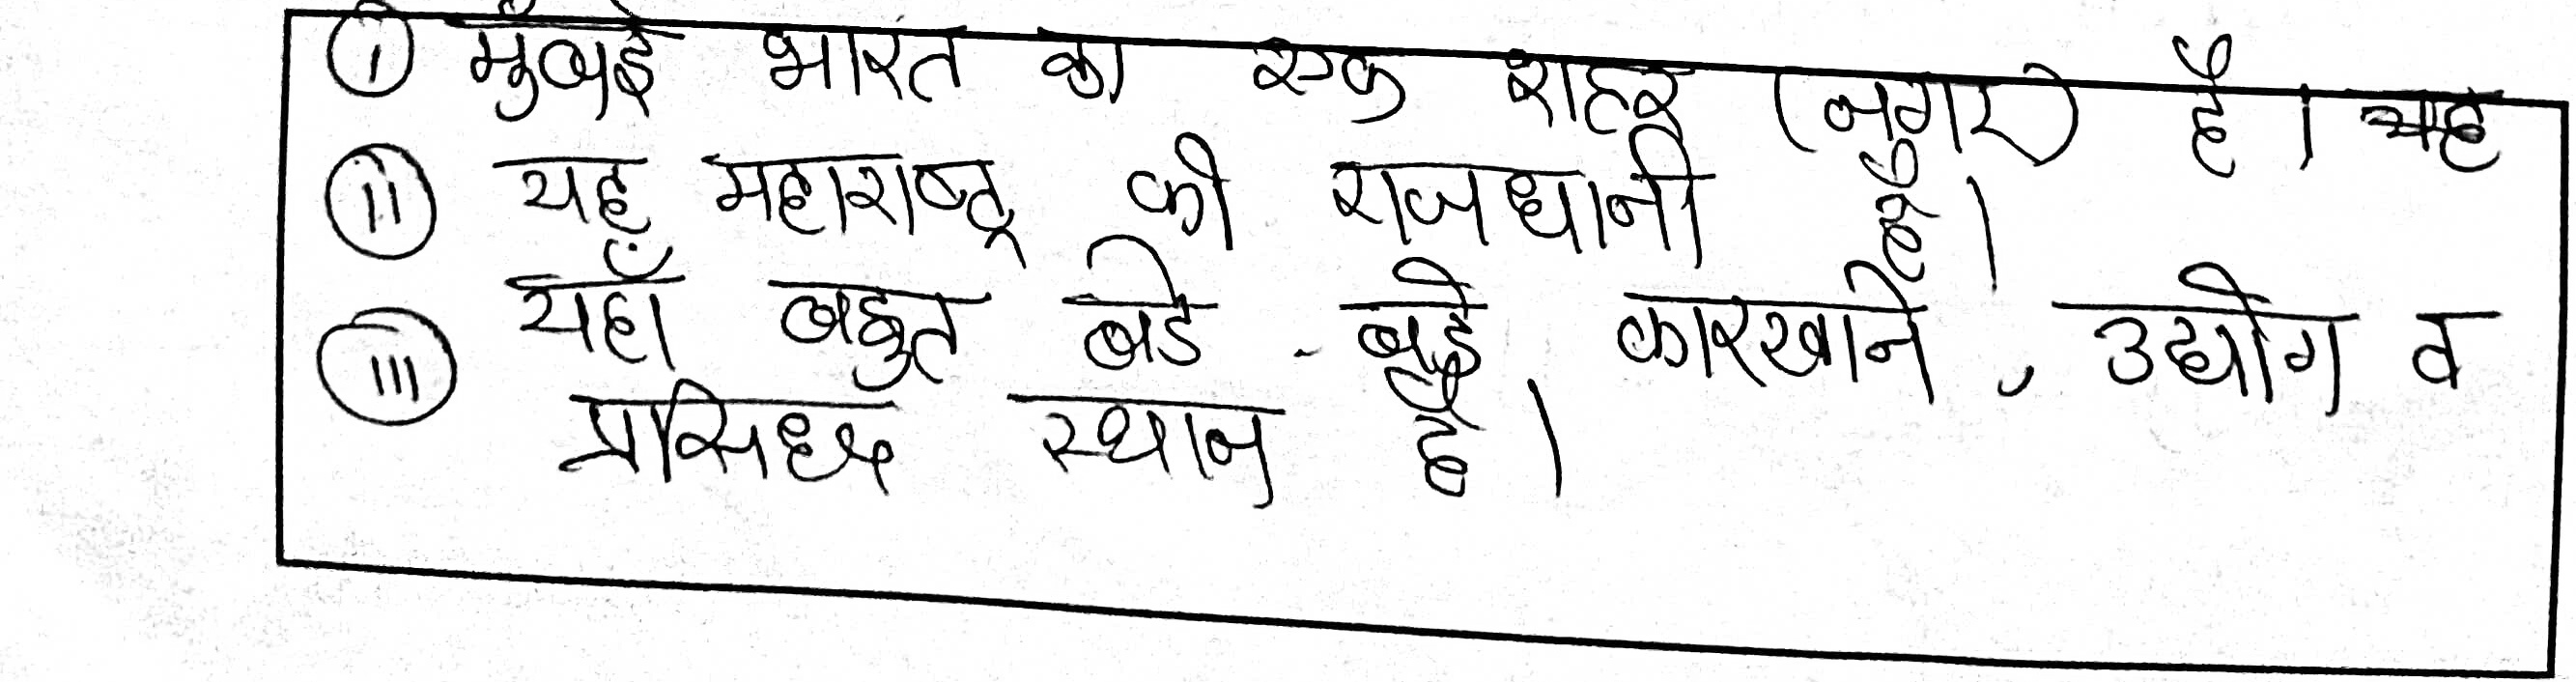 ① मुंबई भारत का एक शहर (नगर) है। यह
② यह महाराष्ट्र की राजधानी है।
③ यहाँ बहुत बडे - बड़े कारखाने, उद्योग व
प्रसिध्द स्थान है।